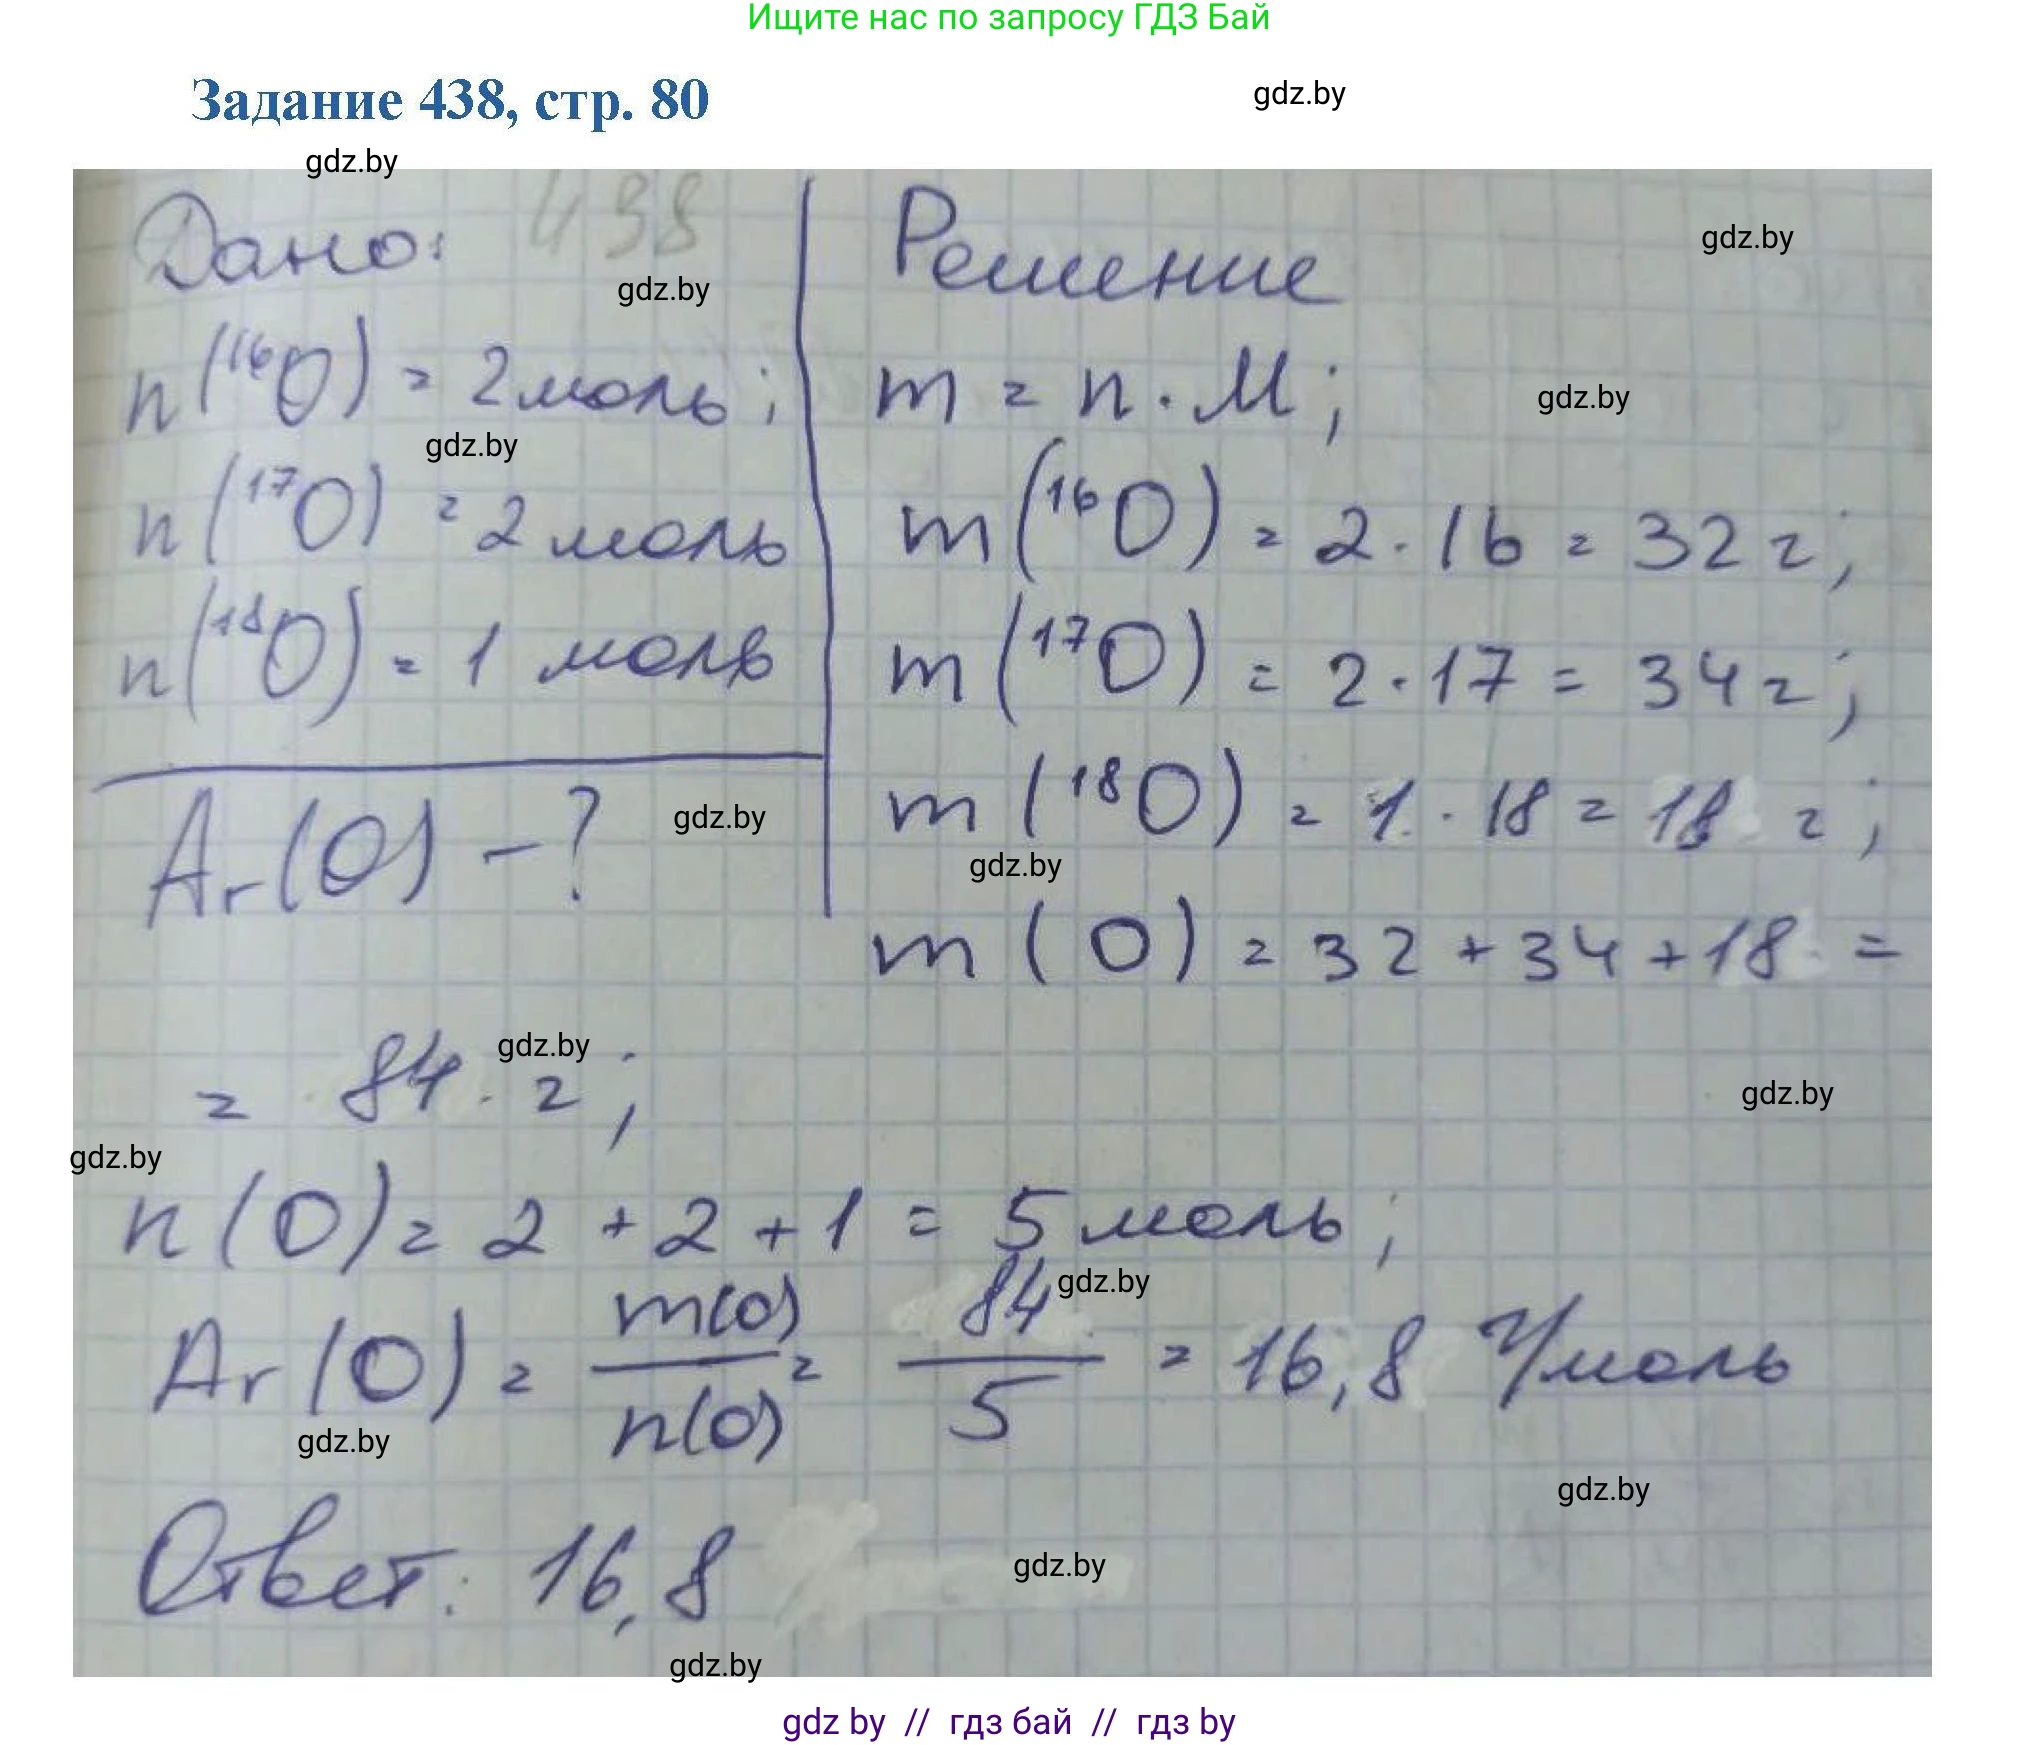 Ищите нас по запросу ГДЗ Бай
Задание 438, стр. 80
gdz.by
gdz.by
Дано:
438
gdz.by
n(¹⁶O) = 2 моль;
gdz.by
n(¹⁷O) = 2 моль
n(¹⁸O) = 1 моль
Ar(O) - ?
gdz.by
Решение
gdz.by
m = n · M;
gdz.by
m(¹⁶O) = 2 · 16 = 32 г;
m(¹⁷O) = 2 · 17 = 34 г;
m(¹⁸O) = 1 · 18 = 18 г;
gdz.by
m(O) = 32 + 34 + 18 =
= 84 г;
gdz.by
gdz.by
gdz.by
n(O) = 2 + 2 + 1 = 5 моль;
gdz.by
Ar(O) = m(O)/n(O) = 84/5 = 16,8 г/моль
gdz.by
gdz.by
Ответ: 16,8
gdz.by
gdz.by
gdz by // гдз бай // гдз by